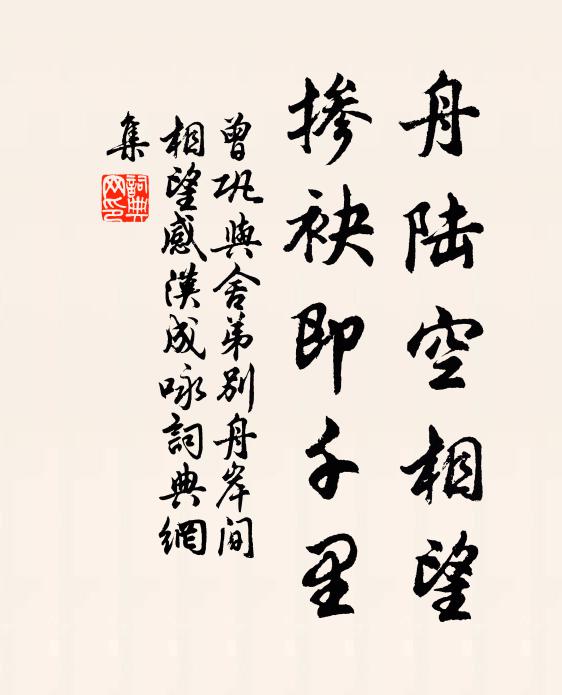 舟陆空相望
掺袂即千里
曾巩與舍弟别舟岸间
相望感漢成咏詞典網
集
詞典
网印